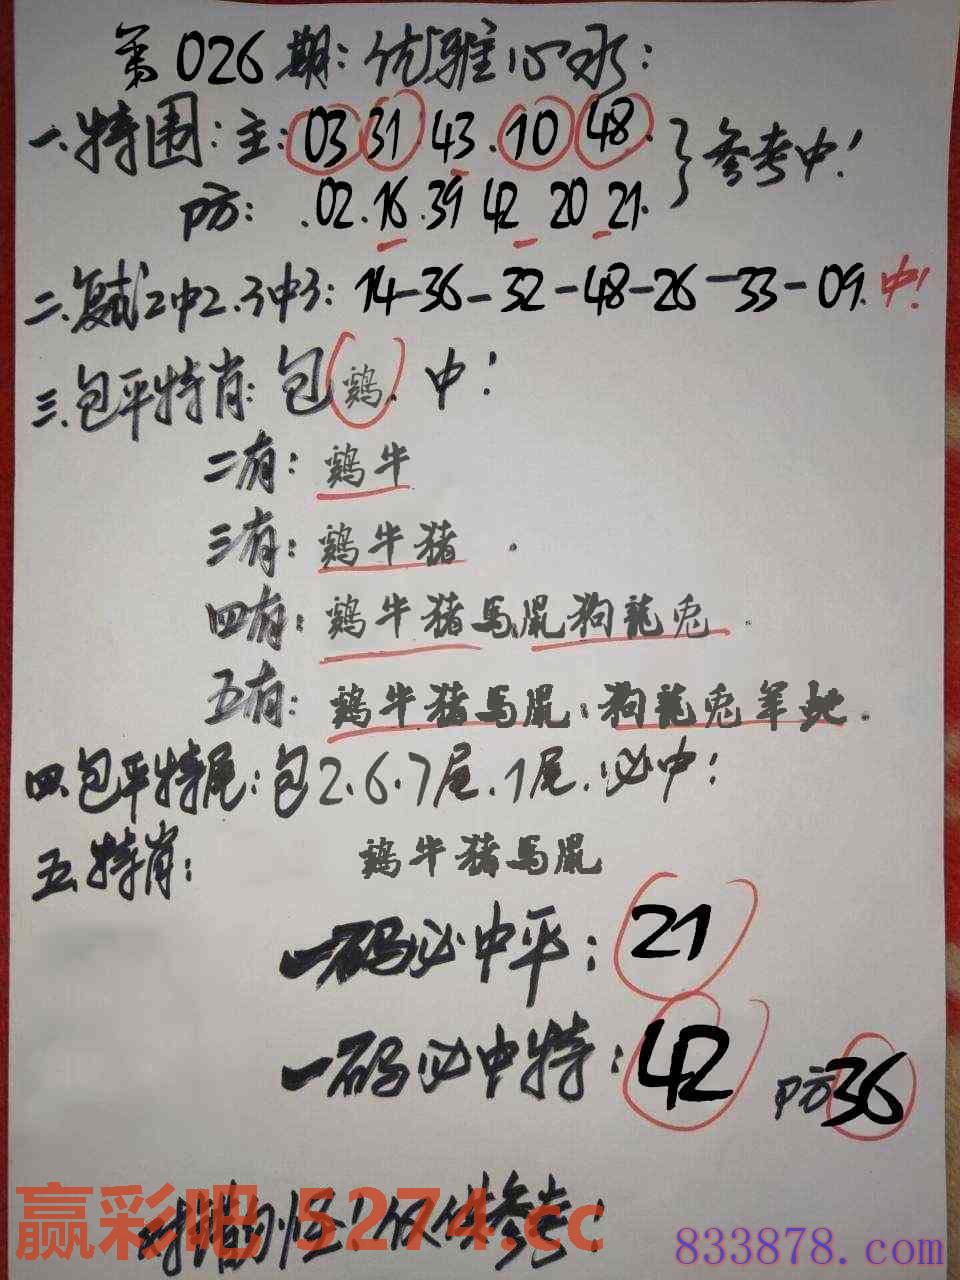 第026期:优雅心水:
一.特围:主:03 31.43.10 48.}参考中!
防:.02.16.39 42 20 21.
二.复式2中2.3中3:14-36-32-48-26-33-09.中!
三.包平特肖:包鷄.中!
二有:鷄牛
三有:鷄牛猪.
四有:鷄牛猪馬鼠狗龍兎.
五有:鷄牛猪馬鼠:狗龍兎羊虵.
四.包平特尾:包2.6.7尾.1尾.必中:
五.特肖:鷄牛猪馬鼠
一码必中平:21
一码必中特:42 防36
对错勿怪!仅供参考:
赢彩吧 5274.cc
833878.com